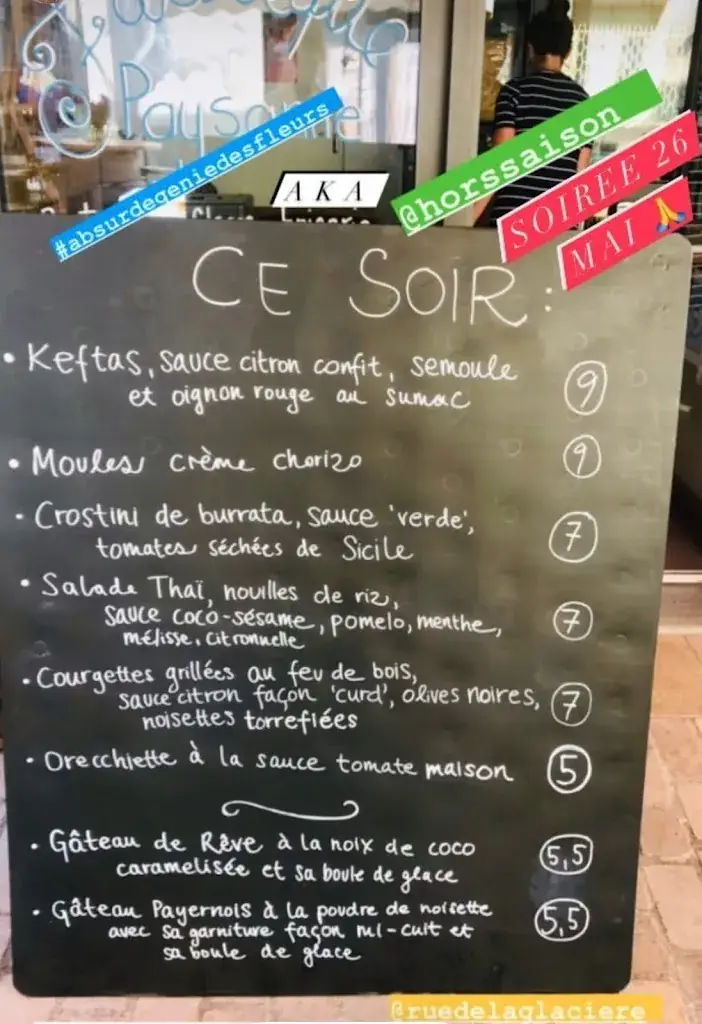 Paysanne
#absurdegeniedesfleurs
AKA
@horssaison
SOIREE 26
MAI 🙏
CE SOIR :
• Keftas, sauce citron confit, semoule
et oignon rouge au sumac
9
• Moules crème chorizo
9
• Crostini de burrata, sauce 'verde',
tomates séchées de Sicile
7
• Salade Thaï, nouilles de riz,
sauce coco-sésame, pomelo, menthe,
mélisse, citronnelle
7
• Courgettes grillées au feu de bois,
sauce citron façon 'curd', olives noires,
noisettes torrefiées
7
• Orecchiette à la sauce tomate maison
5
• Gâteau de Rêve à la noix de coco
caramelisée et sa boule de glace
5,5
• Gâteau Payernois à la poudre de noisette
avec sa garniture façon mi-cuit et
sa boule de glace
5,5
@ruedelaglaciere